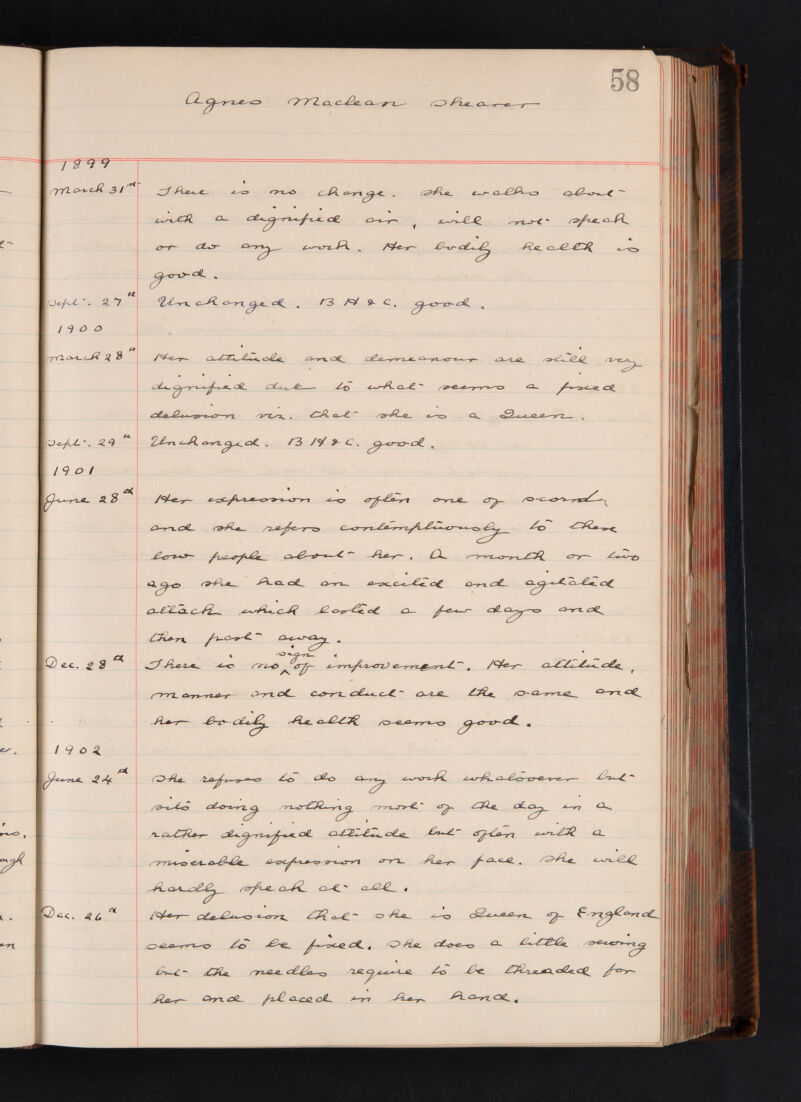 58
Agnes Maclean Shearer
1899
March 31st There is no change. She walks about
with a dignified air, will not speak
or do any work. Her bodily health is
good.
Sept. 27th Unchanged. B H & C. good.
1900
March 28th Her attitude and demeanour are still very
dignified due to what seems a fixed
delusion viz. that she is a Queen.
Sept. 29th Unchanged. B H & C. good.
1901
June 28th Her expression is often one of scorn
and she refers contemptuously to these
low people about her. A month or two
ago she had an excited and agitated
attack which lasted a few days and
then past away.
Dec. 28th There is no sign of improvement. Her attitude,
manner and conduct are the same and
her bodily health seems good.
1902
June 24th She refuses to do any work whatsoever but
sits doing nothing most of the day in a
rather dignified attitude but often with a
miserable expression on her face. She will
hardly speak at all.
Dec. 26th Her delusion that she is Queen of England
seems to be fixed. She does a little sewing
but the needles require to be threaded for
her and placed in her hand.